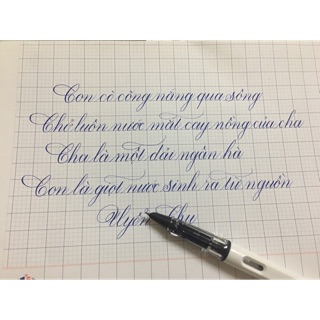 Con cò cõng nắng qua sông
Chở luôn nước mắt cay nồng của cha
Cha là một dải ngân hà
Con là giọt nước sinh ra từ nguồn
Uyên Thu